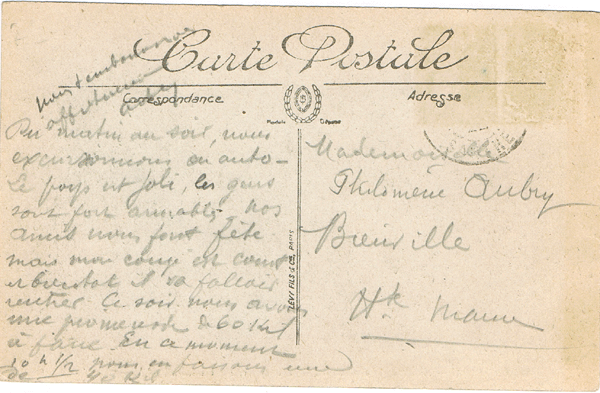 Carte Postale
Correspondance
Adresse
nous embrassons
affectueusement
Du matin au soir, nous
excursionnons en auto –
Le pays est joli, les gens
sont fort aimables. Nos
amis nous font fête
mais mon congé est court
et bientôt il va falloir
rentrer. Ce soir nous avons
une promenade de 60 Kil
à faire. En ce moment
10 h 1/2 nous en faisons une
de 40 Kil
LEVY FILS & CIE, PARIS
Mademoiselle
Philomène Aubry
Bienville
Hte Marne